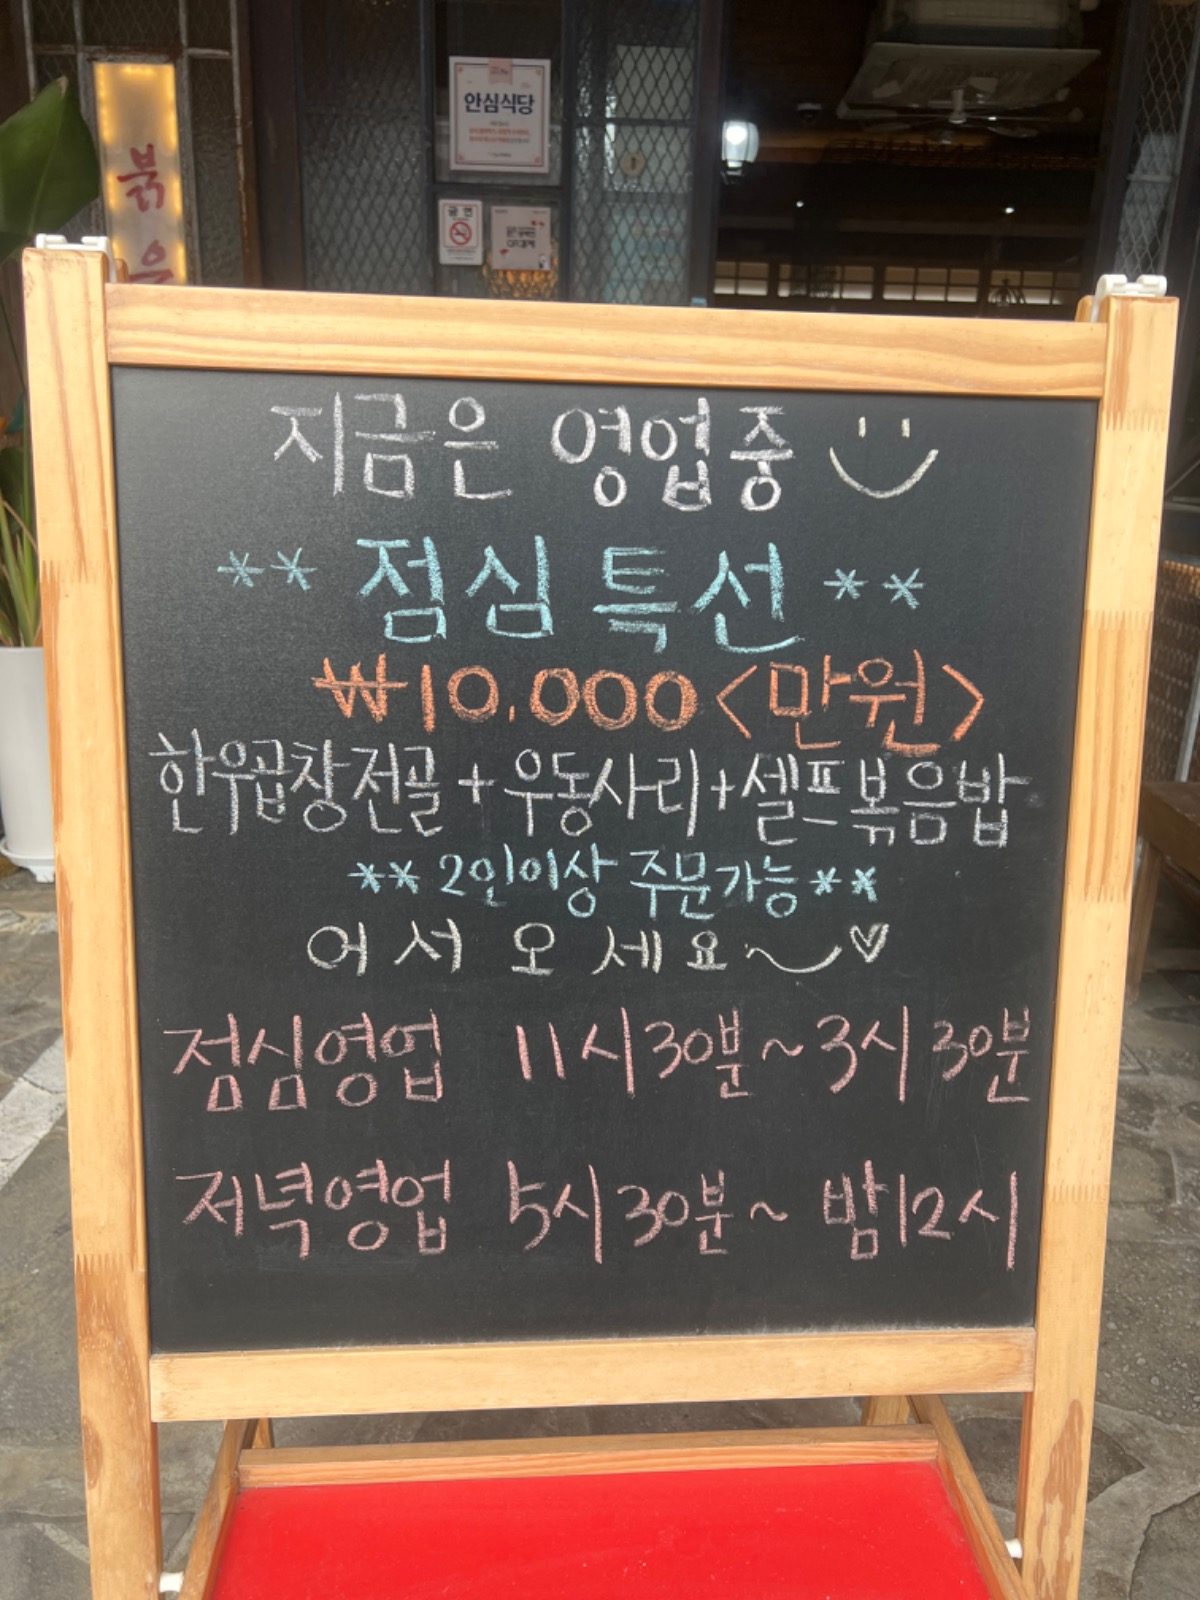 안심식당
금연
붉은
지금은 영업중
** 점심특선 **
₩10,000 <만원>
한우곱창전골 + 우동사리 + 셀프볶음밥
** 2인이상 주문가능 **
어서 오세요~♡
점심영업 11시30분 ~ 3시30분
저녁영업 5시30분 ~ 밤12시